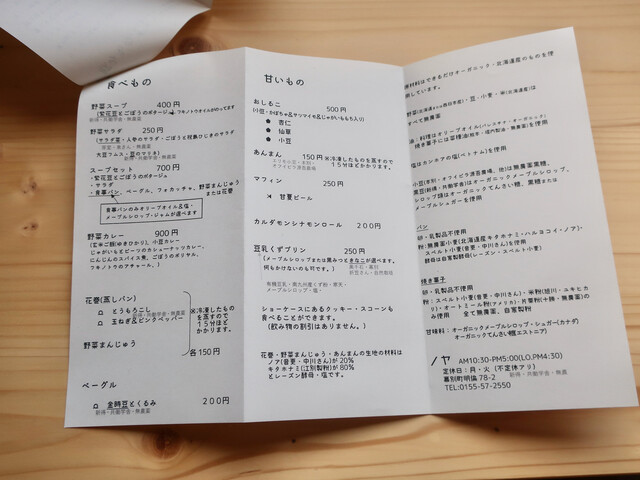 食べもの
野菜スープ 400円
(紫花豆とごぼうのポタージュ フキノトウのオイルがのってます
新得・共働学舎・無農薬
野菜サラダ 250円
(サラダ菜・人参のサラダ・ごぼうと椎茸ひじきのサラダ
大豆フムス・豆のマリネ)
スープセット 700円
・紫花豆とごぼうのポタージュ
・サラダ
・食事パン、ベーグル、フォカッチャ、野菜まんじゅう
または花巻
食事パンのみオリーブオイル&塩・
メープルシロップ・ジャムが選べます
野菜カレー 900円
(玄米ご飯(ゆきひかり)、小豆カレー
じゃがいもとビーツのカシューナッツカレー、
にんじんのスパイス煮、ごぼうのポリヤル、
フキノトウのアチャール、)
花巻(蒸しパン)
とうもろこし
新得・共働学舎・無農薬
玉ねぎ&ピンクペッパー
※冷凍したもの
を蒸すので
15分ほど
かかります。
野菜まんじゅう
各150円
ベーグル
金時豆とくるみ 200円
新得・共働学舎・無農薬
甘いもの
おしるこ 500円
(小豆・かぼちゃ&サツマイモ&じゃがいももち入り)
杏仁
仙草
小豆
あんまん 150円
※冷凍したものを蒸すので
15分ほどかかります。
マフィン 250円
甘夏ピール
カルダモンシナモンロール 200円
豆乳くずプリン 250円
(メープルシロップまたは黒みつときなこが選べます。
何もかけないのも可です。)
ショーケースにあるクッキー・スコーンも
食べることができます。
(飲み物の割引はありません。)
花巻・野菜まんじゅう・あんまんの生地の材料は
ノア(音更・中川さん)が20%
キタホナミ(江別製粉)が80%
とレーズン酵母・塩です。
原材料はできるだけオーガニック・北海道産のものを使
用しています。
すべて無農薬
塩はカンホアの塩(ベトナム)を使用
メープルシュガーを使用
パン
卵・乳製品不使用
粉:無農薬小麦(北海道産キタホナミ・ハルヨコイ・ノア)・
スペルト小麦(音更・中川さん)を使用
酵母は自家製酵母(レーズン・スペルト小麦)
焼き菓子
卵・乳製品不使用
粉:スペルト小麦(音更・中川さん)・米粉(旭川・ユキヒカ
リ)・オートミール粉(アメリカ)・片栗粉(十勝・無農薬)の
み使用 全て無農薬、自家製粉
甘味料:オーガニックメープルシロップ・シュガー(カナダ)
オーガニックてんさい糖(エストニア)
ノヤ AM10:30-PM5:00(LO.PM4:30)
定休日:月・火(不定休アリ)
幕別町明倫78-2
TEL:0155-57-2550
新得・共働学舎・無農